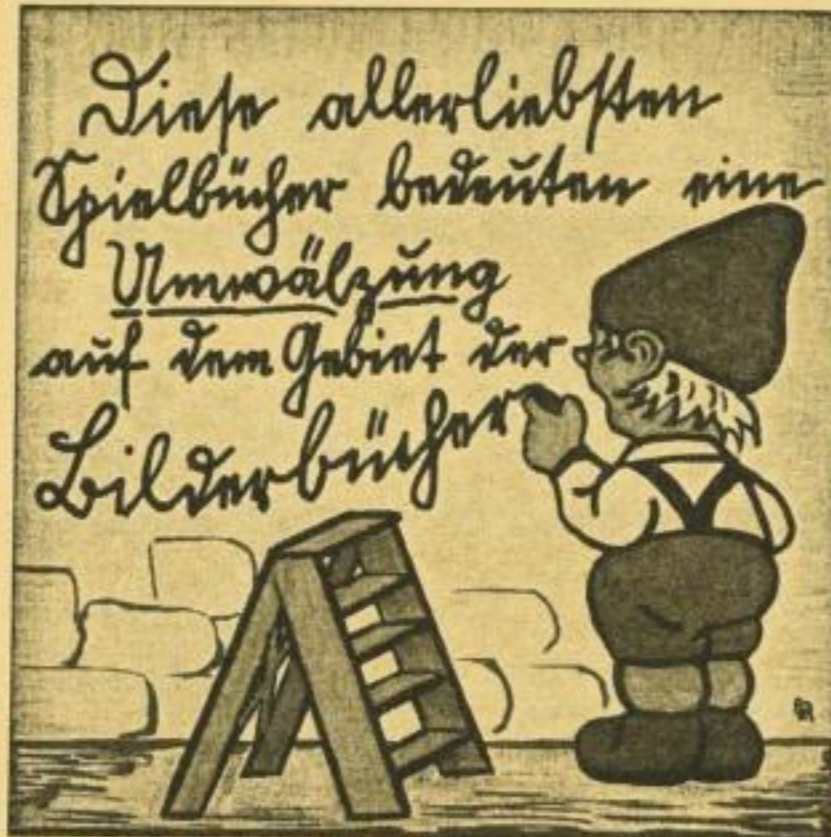 Diese allerliebsten
Spielbücher bedeuten eine
Umwälzung
auf dem Gebiet der
Bilderbücher